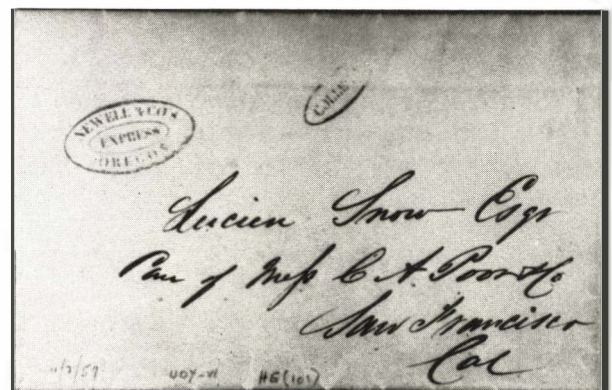 NEWELL & CO'S
EXPRESS
OREGON
Lucien Snow Esqr
Care of Mess C. A. Poor & Co
San Francisco
Cal
HG(101)